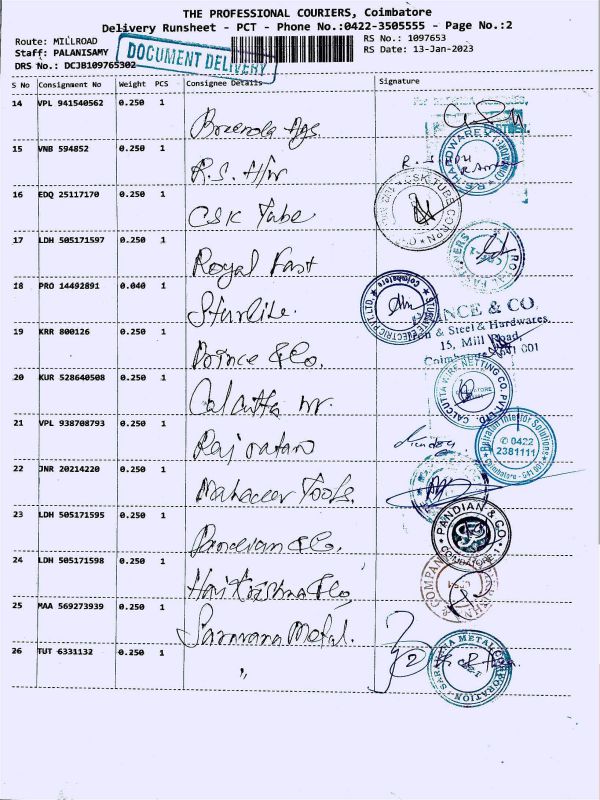 THE PROFESSIONAL COURIERS, Coimbatore
Delivery Runsheet - PCT - Phone No.:0422-3505555 - Page No.:2
Route: MILLROAD
RS No.: 1097653
Staff: PALANISAMY
RS Date: 13-Jan-2023
DRS No.: DCJB109765302
DOCUMENT DELIVERY
S No Consignment No Weight PCS Consignee Details Signature
14 VPL 941540562 0.250 1
15 VNB 594852 0.250 1 R.S. H/w
16 EDQ 25117170 0.250 1 CSK Tube
17 LDH 505171597 0.250 1 Royal Fast
18 PRO 14492891 0.040 1 Starlite.
19 KRR 800126 0.250 1 Prince & Co.
20 KUR 528640508 0.250 1 Calcutta
21 VPL 938708793 0.250 1 Raj ratan
22 JNR 20214220 0.250 1 Mahaveer Tools.
23 LDH 505171595 0.250 1 Pandian & Co.
24 LDH 505171598 0.250 1 Hari Krishna & Co,
25 MAA 569273939 0.250 1 Saravana Metal.
26 TUT 6331132 0.250 1 "
HARDWARE
CSK TUBE CORPN
ROYAL FASTENERS
Coimbatore
INCE & CO.
& Steel & Hardwares,
15, Mill Road,
CALCUTTA WIRE NETTING CO. PVT. LTD.
Interior Solutions
✆ 0422
2381111
Coimbatore - 641 001
PANDIAN & CO.
COIMBATORE-1
& COMPANY
METAL CORPORATION